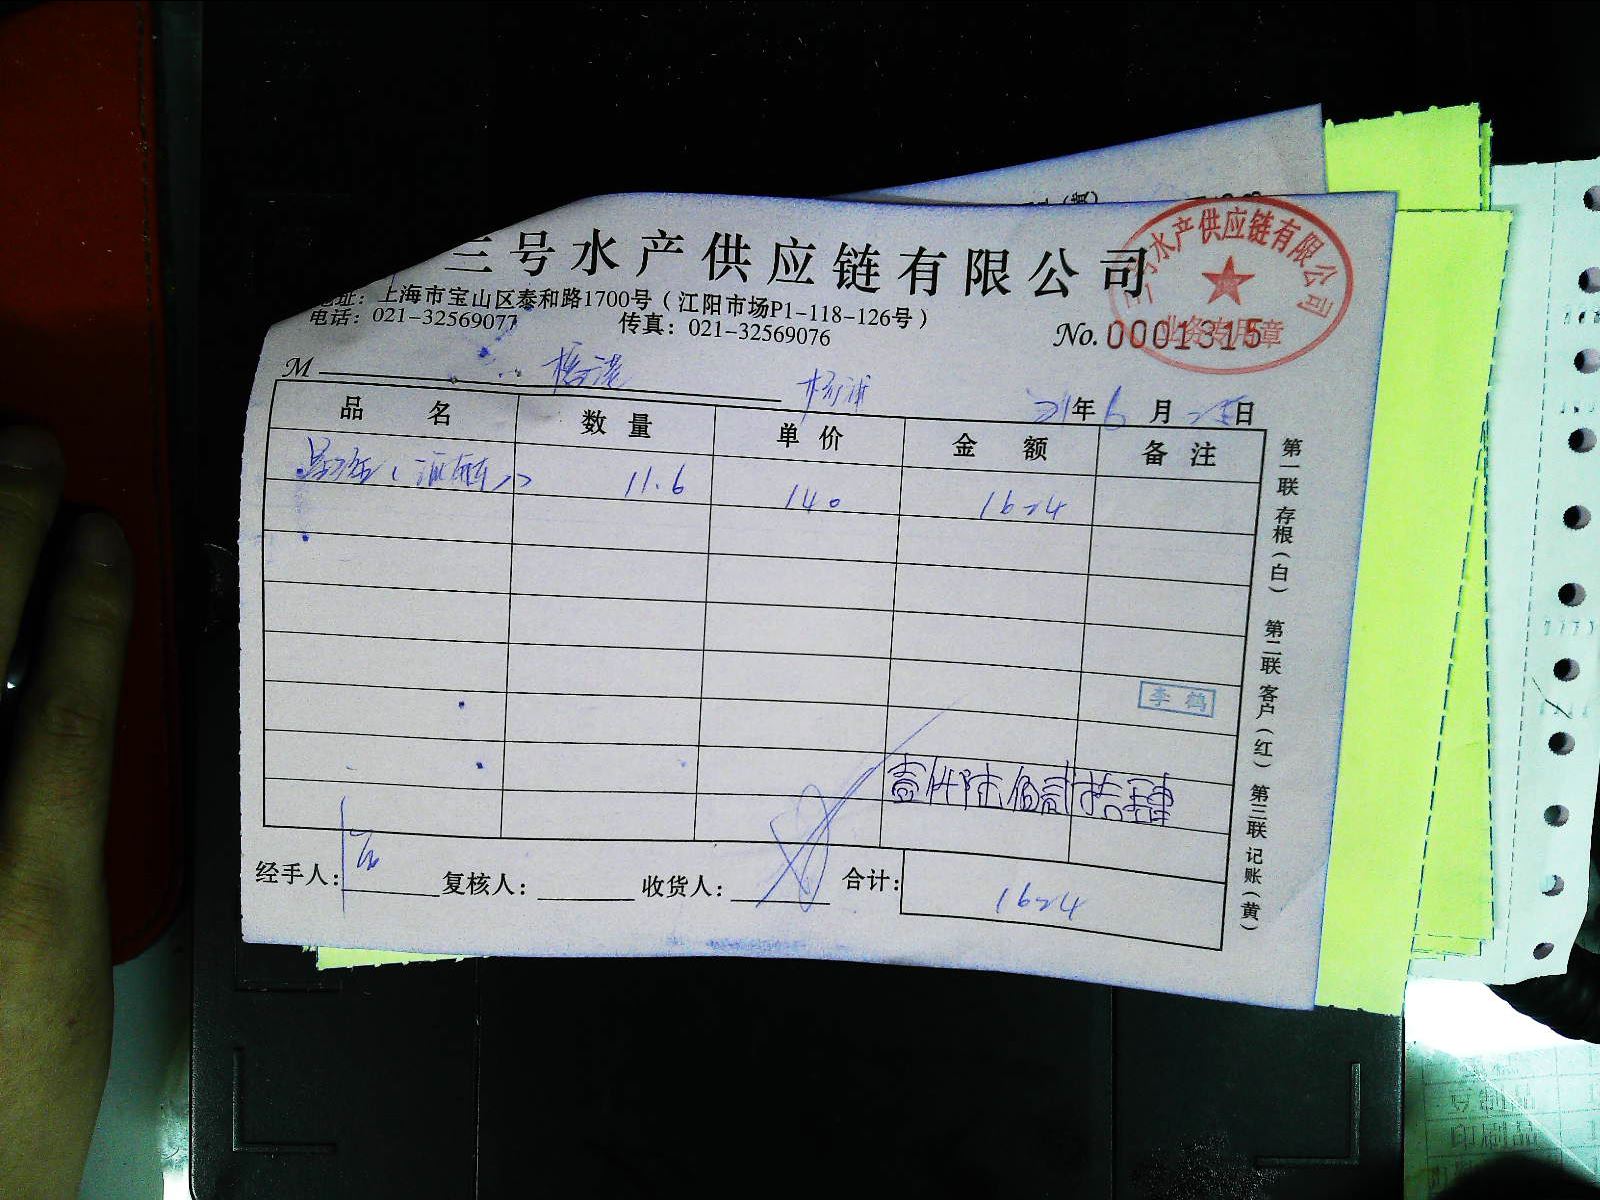 三号水产供应链有限公司
地址：上海市宝山区泰和路1700号（江阳市场P1-118-126号）
电话：021-32569077 传真：021-32569076
No.0001315
水产供应链有限公司
业务专用章
M 杨浦
21年6月25日
品 名 数 量 单 价 金 额 备 注
11.6 140 1624
李鹤
壹仟陆佰贰拾肆
经手人： 复核人： 收货人： 合计： 1624
第一联 存根（白） 第二联 客户（红） 第三联 记账（黄）
豆制品
印刷品